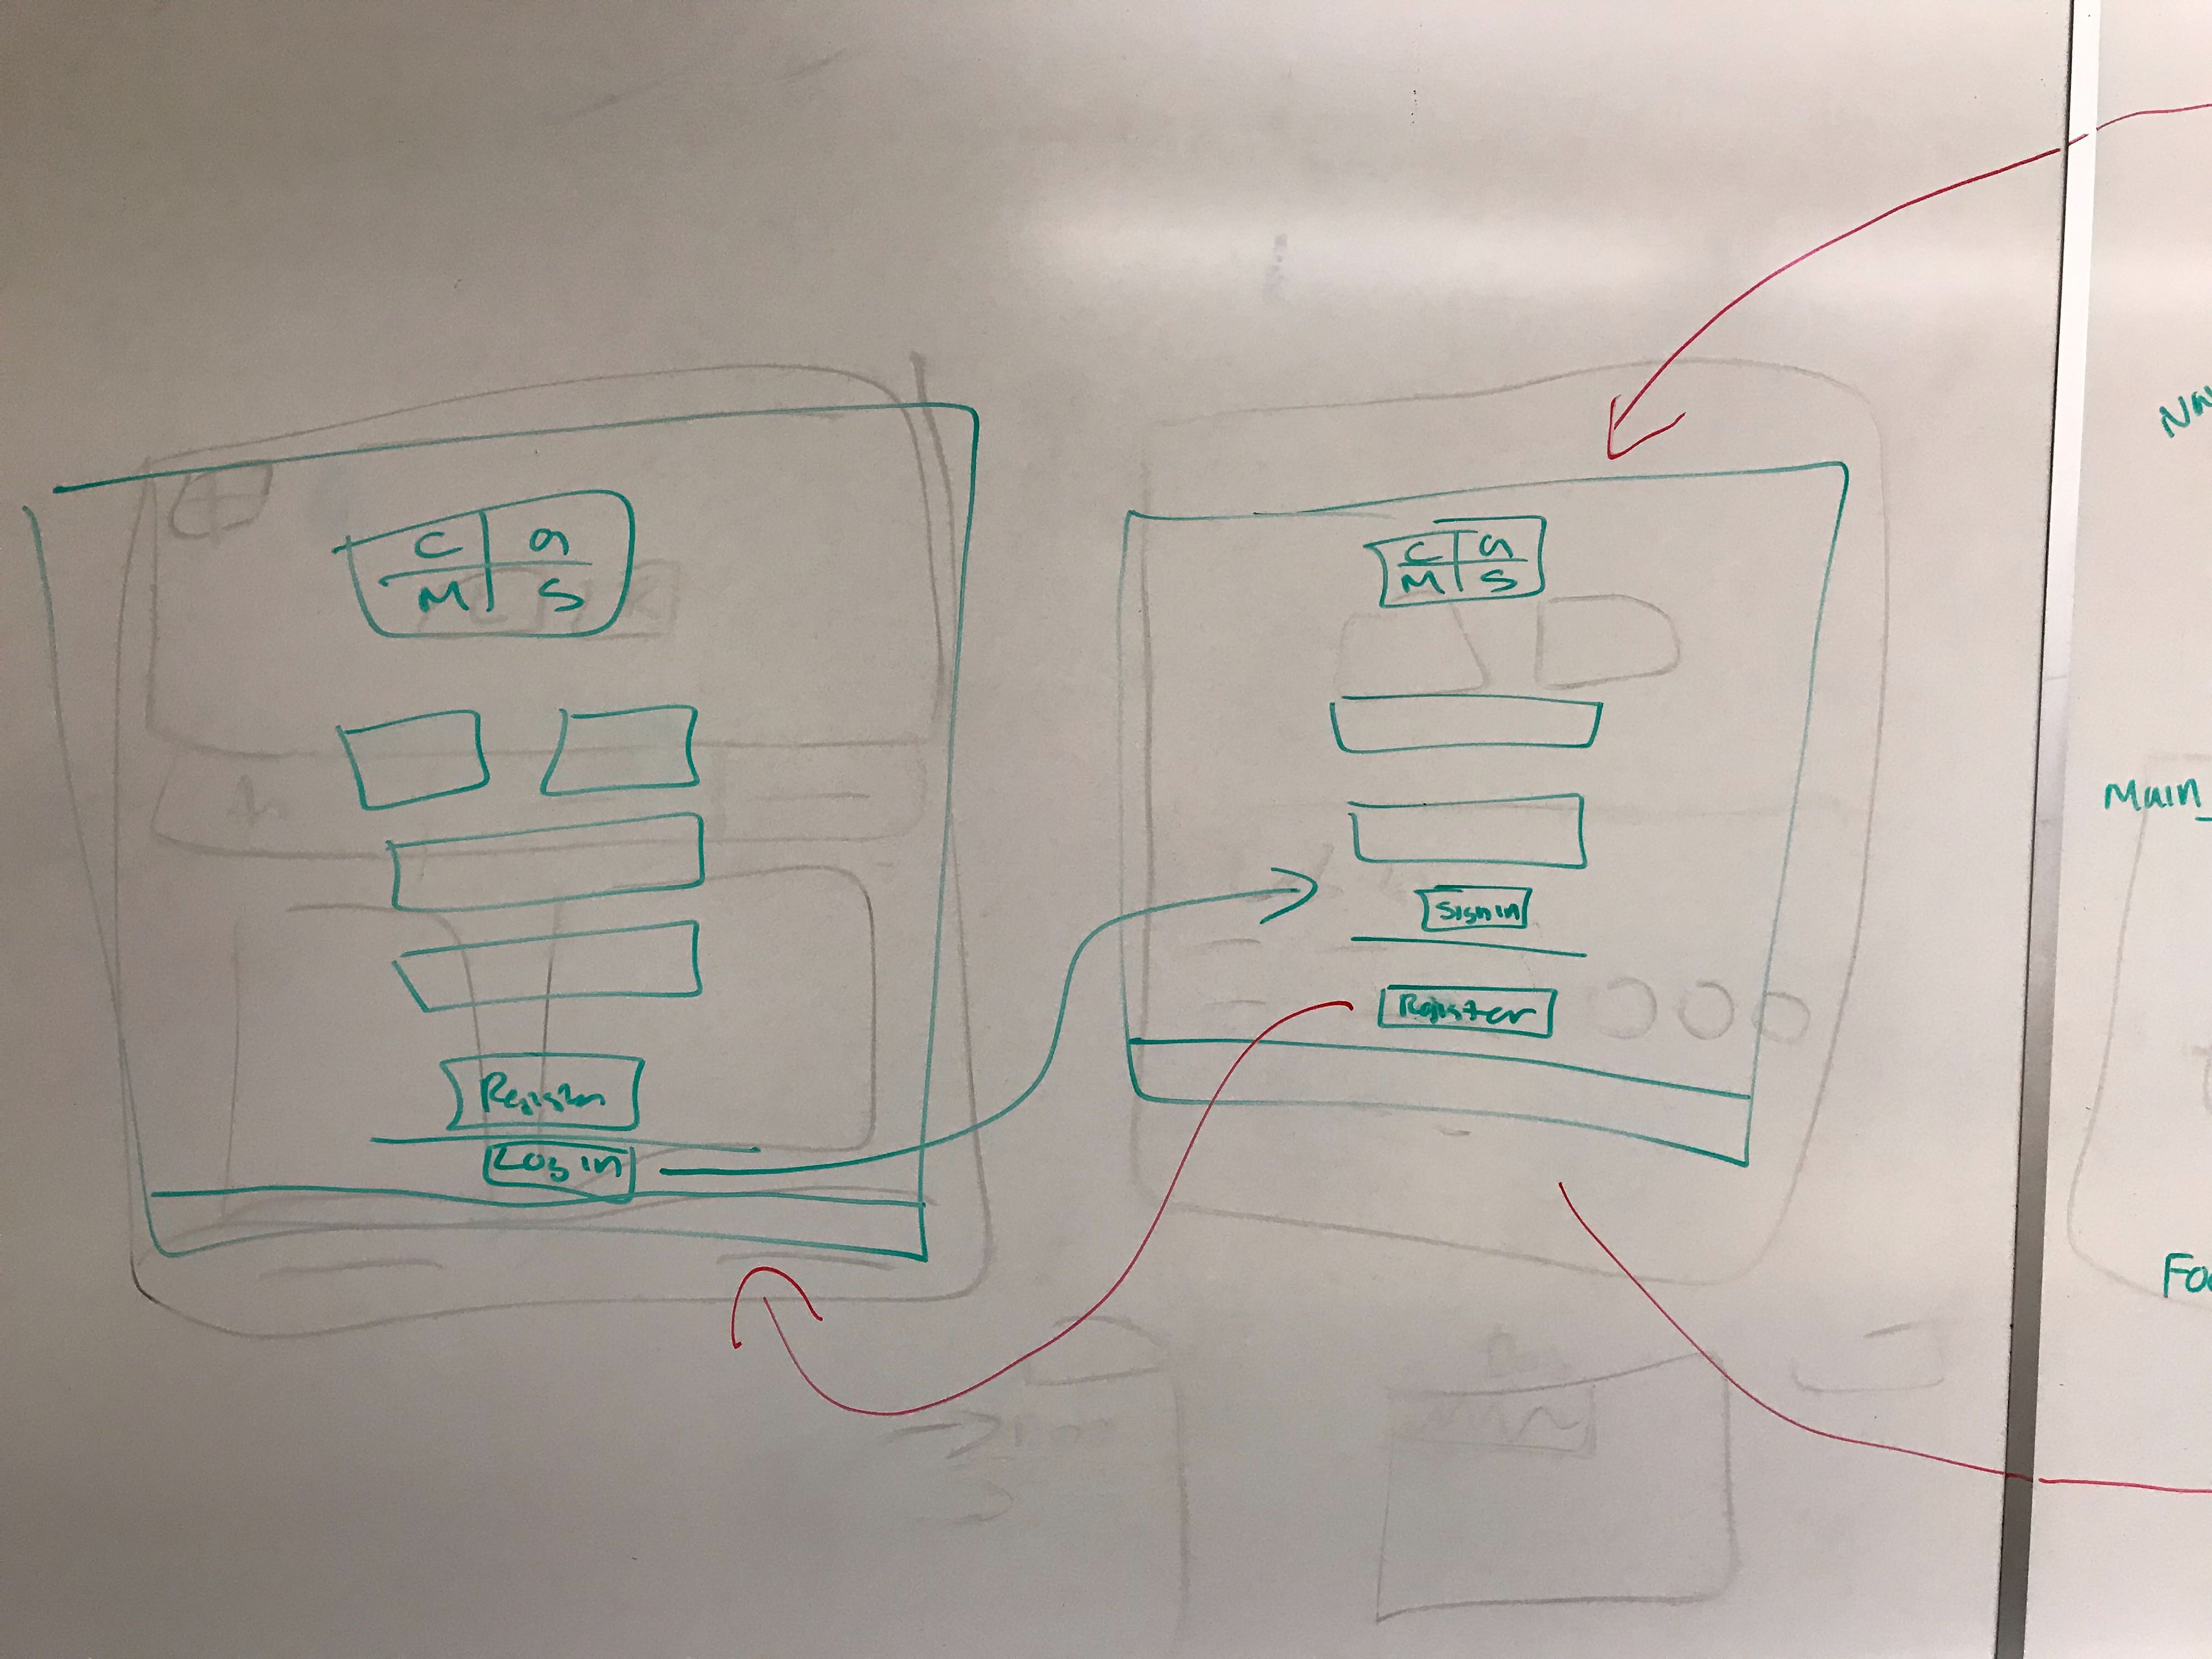 C a
M S
Register
Log in
C a
M S
Sign in
Register
Main